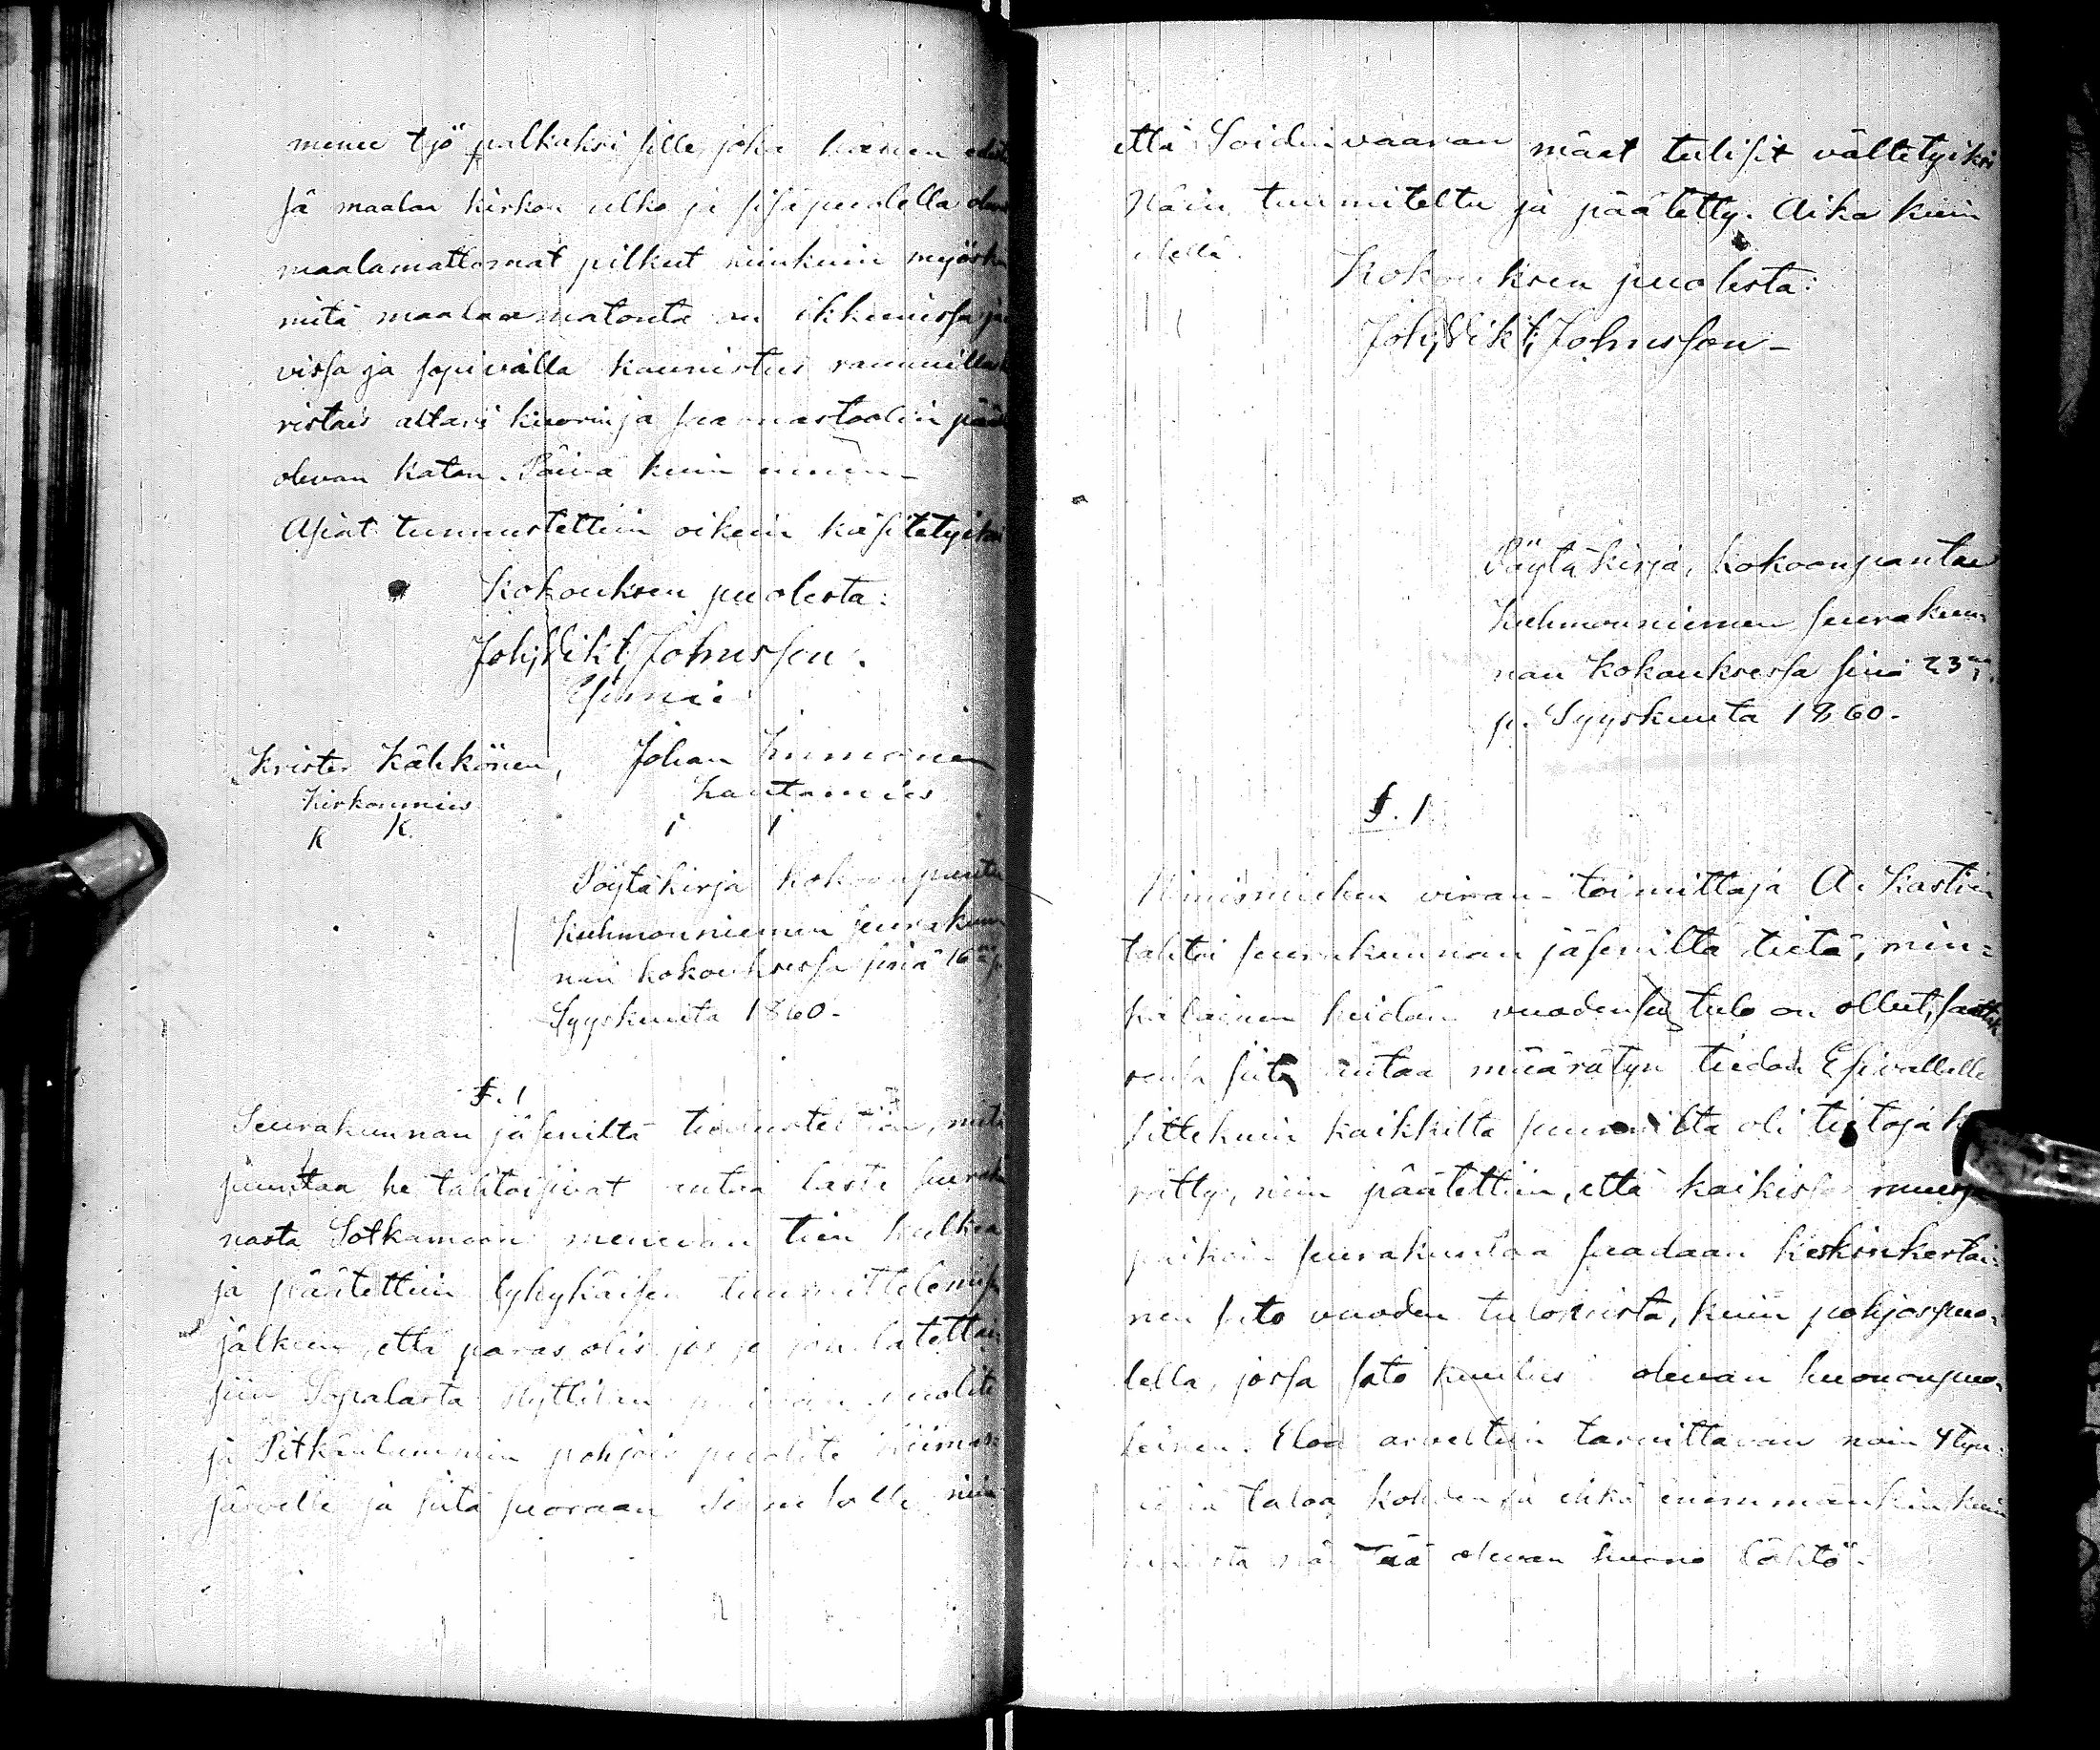 menee työ palkaksi sille joka hänen
sä maalaa kirkon ulko ja sisäpuolella
maalamattomat pilkut niinkuin myöskin
mitä maalaamatonta on ikkunissa ja
vissa ja sopivalla kaunistus
ristais altari kuorin ja saarnastoolin
olevan katon. Päivä kuin ennen
Asiat tunnustettiin oikein käsitetyiksi
Kokouksen puolesta:
Joh: Vikt: Johnsson.
Krister Kähkönen, Johan Immonen
Kirkonmies Lautamies
K K. I I
Pöytäkirja kokoonpantu
Kuhmonniemen seurakun
nan kokouksessa sinä 16
Syyskuuta 1860.
§. 1
Seurakunnan jäseniltä tiedusteltiin, mitä
suuntaa he tahtoisivat antaa tästä
nasta Sotkamoon menevän tien kulkea
ja päätettiin lyhykäisen tuumittelemisen
jälkeen, että paras olis jos se
siin Sopalasta
ja Pitkänlammin pohjois puolite
järvelle ja siitä suoraan niin
että Soidinvaaran mäet tulisit vältetyiksi
Näin tuumiteltu ja päätetty. Aika kuin
Kokouksen puolesta:
Joh: Vikt: Johnsson
Pöytäkirja, kokoonpantu
Kuhmonniemen seurakun
nan kokouksessa sinä 23
p. Syyskuuta 1860.
§. 1
Nimismiehen viran-toimittaja A. Kastin
tahtoi seurakunnan jäseniltä tietä, min-
kälainen heidän vuoden tulo on ollut,
siitä antaa määrätyn tiedon Esivallalle
sittekuin kaikkilta suunnilta oli tietoja
rätty, niin päätettiin, että kaikissa muissa
paikoin seurakuntaa saadaan keskinkertai-
nen sato vuoden tulosta, kuin pohjospuo-
lella, jossa sato kuului olevan huononpuo-
leinen. Eloa arveltiin tarvittavan noin 4 tyn-
taloa kohden ja ehkä enemmänkin kuin
olevan huono lähtö.